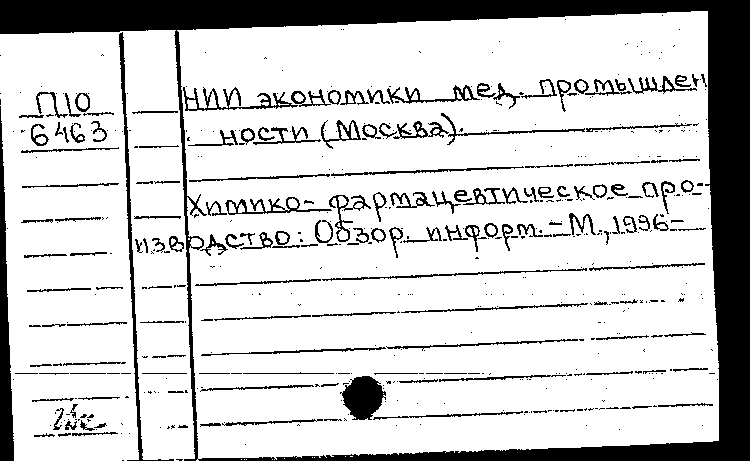 П10
6463
НИИ экономики мед. промышлен
ности (Москва).
Химико-фармацевтическое про-
изводство: Обзор. информ. - М., 1996-